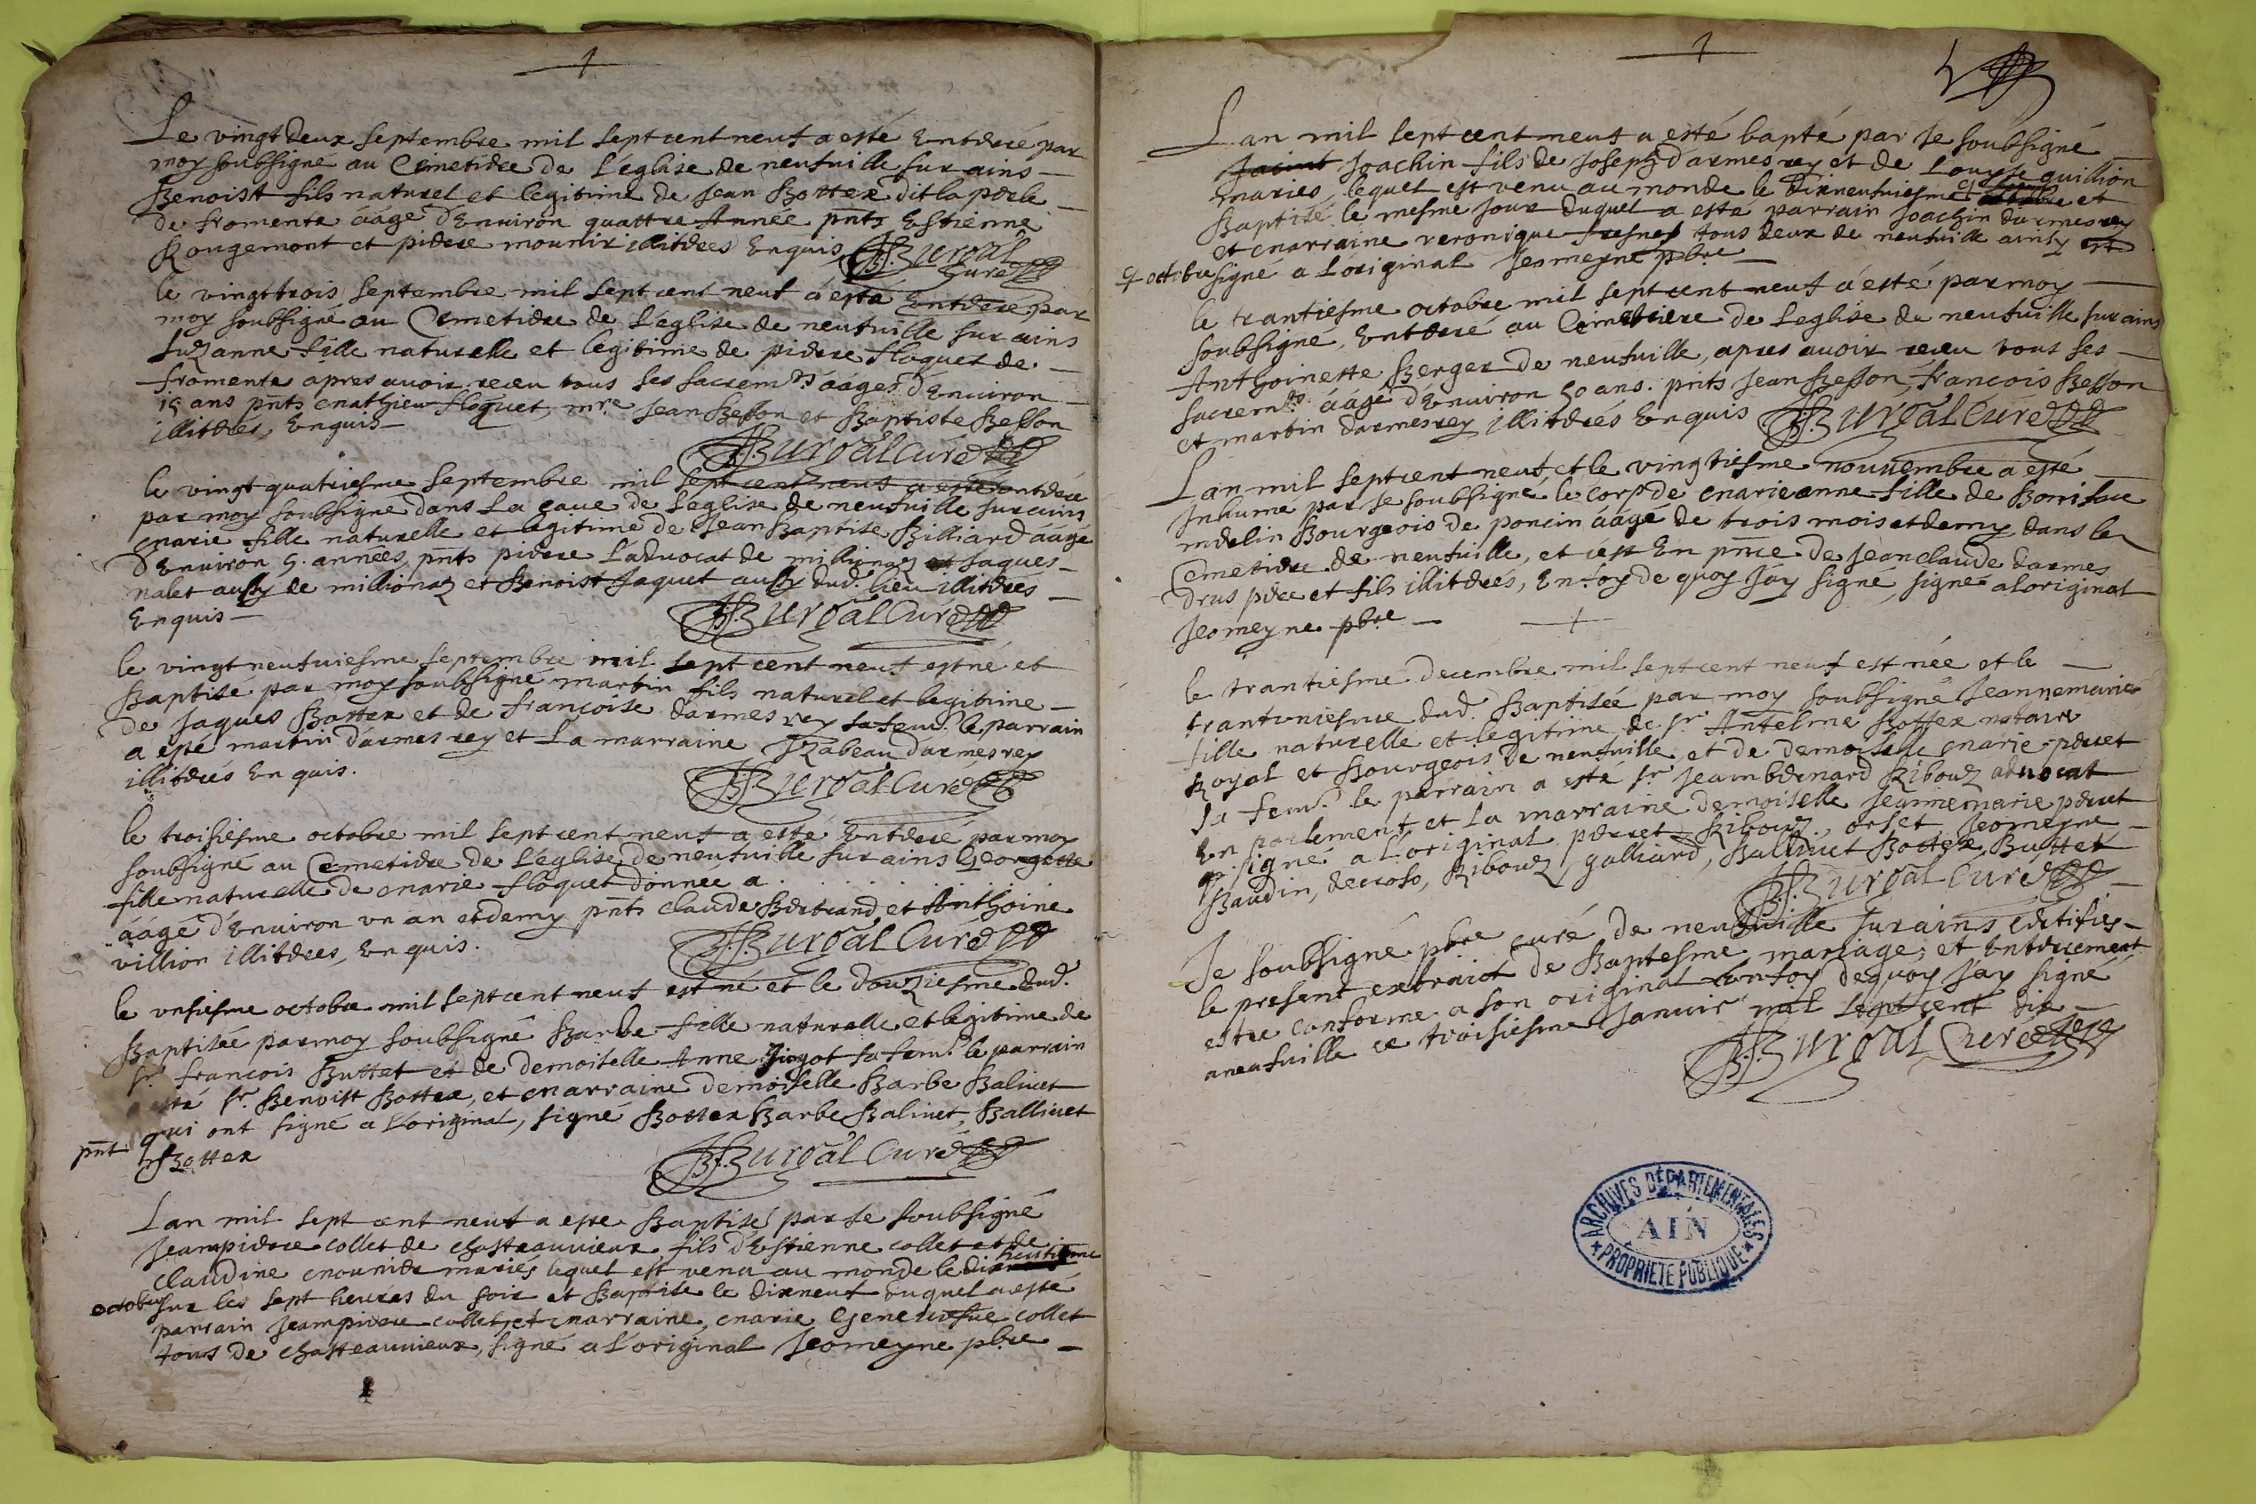 Le vingtdeux septembre mil septcent neuf a esté Enterré par
moy soubsigné au Cemetiere de L'église de neufuille sur ains
Benoist fils naturel et legitime de Jean Botter dit la perle
de fromente áágé d'Enuiron quattre Année pnts Estienne
Rougemont et pierre mounir illitérés Enquis
B.Burgal
Curé
le vingttrois septembre mil septcent neuf a esté Enterré par
moy soubsigné au Cemetiere de L'église de neufuille sur ains
Suzanne fille naturelle et legitime de pierre floquet de
fromente apres auoir receu tous ses sacremts áágée d'Enuiron
15 ans pnts mathieu floquet, mre Jean Besson et Baptiste Besson
illitérés, Enquis
B.Burgal Curé
le vingt quatriesme septembre mil sept cent neuf a esté enterée
par moy soubsigné dans La caue de L'église de neufuille sur ains
marie fille naturelle et legitime de Jean Baptiste Billiard áágé
d'Enuiron 5. années, pnts pierre L'aduocat de millionaz Jaques
nalet aussy de millionaz et Benoist Jaquet aussy dud. lieu illitérés
Enquis
B.Burgal Curé
le vingt neufuiesme septembre mil sept cent neuf est né et
Baptisé par moy soubsigné martin fils naturel et legitime
de Jaques Botter et de francoise darmesrey sa fem. le parrain
a esté martin d'armesrey et La marraine Izabeau darmesrey
illitérés En quis.
B.Burgal Curé
le troisiesme octobre mil septcent neuf a esté Enterré par moy
soubsigné au Cemetiere de L'église de neufuille sur ains Georgette
fille naturelle de marie floquet donnee a
áágé d'Enuiron un an et demy pnts claude Bertrand, et Anthoine
villion illitérés, Enquis.
B.Burgal Curé
le unsiesme octobre mil septcent neuf est né et le douziesme dud.
Baptisée par moy soubsigné Barbe fille naturelle et legitime de
sr. francois Buttet et de demoiselle Anne Jiogot sa fem. le parrain
a esté sr. Benoist Botter, et marraine demoiselle Barbe Baliuet
qui ont signé a L'original, signé Botter Barbe Baliuet, Balliuet
pnt Botter
B.Burgal Curé
Lan mil sept cent neuf a esté Baptisé par Je soubsigné
Jeanpierre collet de chasteauuieux, fils d'Estienne collet et de
Claudine mounier mariés lequel est venu au monde le dix huitieme
octobre sur les sept heures du soir et Baptisé le dixneuf duquel a esté
parrain Jeanpierre collet, et marraine, marie Geneuiefue collet
tous de chasteauuieux, signé a L'original Jeomeyne pbre
Lan mil sept cent neuf a esté bapté par Je soubsigné
Joachin fils de Joseph d'armesrey et de Louyse quillion
mariés, lequel est venu au monde le dixneufuiesme et
Baptisé le mesme jour duquel a esté parrain Joachin darmesrey
et marraine veronique fresnes tous deux de neufuille ains
octobre signé a L'original Jeomeyne pbre
le trantiesme octobre mil sept cent neuf a esté par moy
soubsigné, Enterré au Cemetiere de Leglise de neufuille sur ains
Anthoinette Berger de neufuille, apres auoir receu tous ses
sacremts áágé d'Enuiron 50 ans. pnts Jean Besson, francois Besson
et martin darmesrey illitérés Enquis
B.Burgal Curé
Lan mil septcent neuf, et le vingtiesme nouuembre a esté
Inhumé par Je soubsigné, le corps de marieanne fille de Boniface
mdelin Bourgeois de poncin áágé de trois mois et demy dans le
Cemetiere de neufuille, et c'est En pnce de Jeanclaude darmes
drus pere et fils illitérés, En foy de quoy J'ay signé, signé a Loriginal
Jeomeyne pbre
le trantiesme decembre mil septcent neuf est née et le
trantuniesme dud. Baptisée par moy soubsigné Jeannemarie
fille naturelle et legitime de sr Antelme Botter notaire
Royal et Bourgeois de neufuille et de demoiselle marie peret
sa fem. le parrain a esté sr. Jeanbernard Ribouz aduocat
En parlement et La marraine demoiselle Jeannemarie peret
signé a L'original perret, Ribouz, orset Jeomeyne
Baudin, decroso, Ribouz, galliard, Balliuet Botter Buttet
B.Burgal Curé
Je soubsigné pbre curé de neufuille sur ains certifies
le present extraict de Baptesme, mariage, et Enterrement
estre conforme a son original En foy dequoy J'ay signé
a neufuille ce troisiesme Januier mil sept cent dix
B.Burgal Curé
ARCHIVES DÉPARTEMENTALES
AIN
PROPRIÉTÉ PUBLIQUE